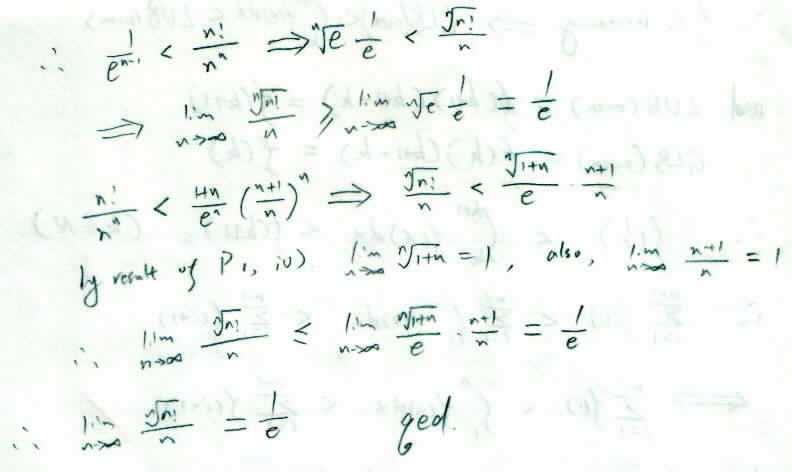 ∴ 1/e^(n-1) < n!/n^n ⟹ ⁿ√e 1/e < ⁿ√n!/n
⟹ lim n→∞ ⁿ√n!/n ≥ lim n→∞ ⁿ√e 1/e = 1/e
n!/n^n < (1+n)/e^n ((n+1)/n)^n ⟹ ⁿ√n!/n < ⁿ√(1+n)/e · (n+1)/n
by result of P1, iv) lim n→∞ ⁿ√(1+n) = 1, also, lim n→∞ (n+1)/n = 1
∴ lim n→∞ ⁿ√n!/n ≤ lim n→∞ ⁿ√(1+n)/e · (n+1)/n = 1/e
∴ lim n→∞ ⁿ√n!/n = 1/e qed.